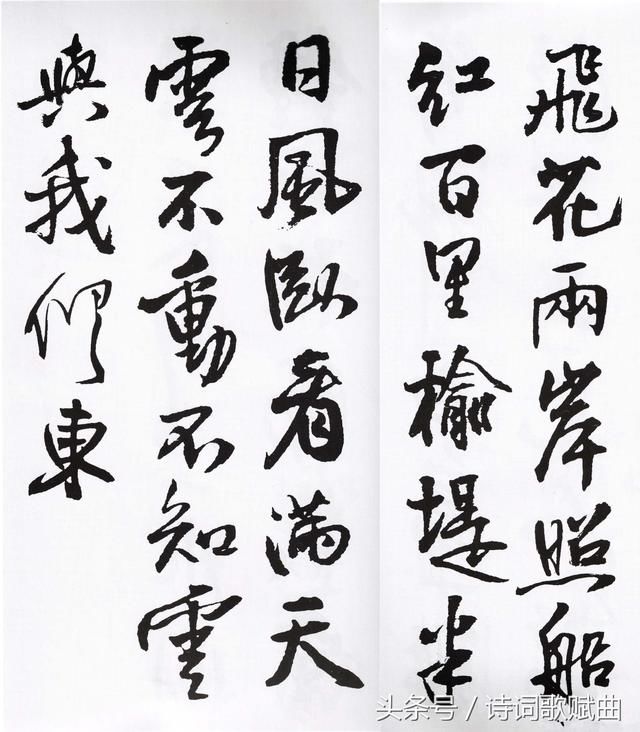 飛花兩岸照船
紅百里榆堤半
日風臥看滿天
雲不動不知雲
與我俱東
头条号 / 诗词歌赋曲